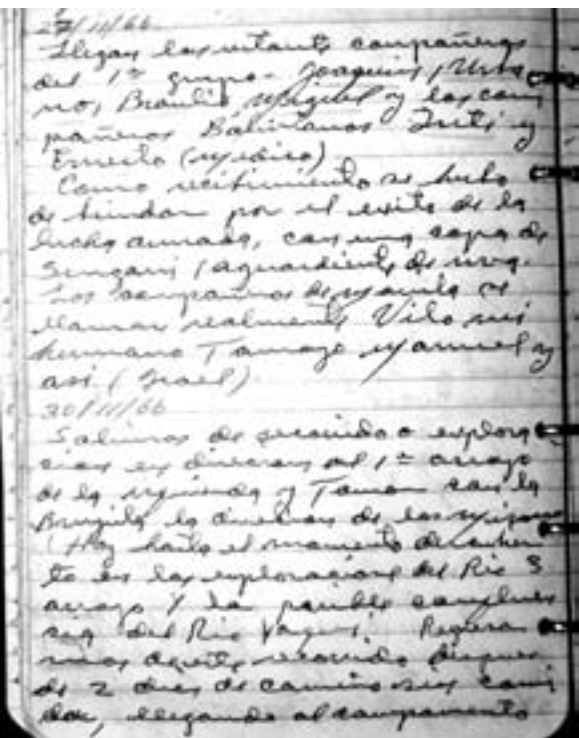 27/11/66
Llegan los restantes compañeros
del 1º grupo - Joaquin, Urba
no, Braulio Miguel y los com
pañeros Bolivianos Inti y
Ernesto (medico)
Como recibimiento se hubo
de brindar por el exito de la
lucha armada, con una copa de
Singani (aguardiente de uva.
Los compañeros de
llaman realmente Vilo mi
hermano Tamayo Manuel y
asi (Israel)
30/11/66
Salimos de recorrido o explora
cion en direccion al 1º arroyo
de la y Toman con la
Brujula la direccion de los mismos
(Hay hasta el momento
to en las exploraciones del Rio 3
arroyo y la posible
del Rio Regresa
mos de recorrido despues
de 2 dias de camino sin comi
da, llegando al campamento